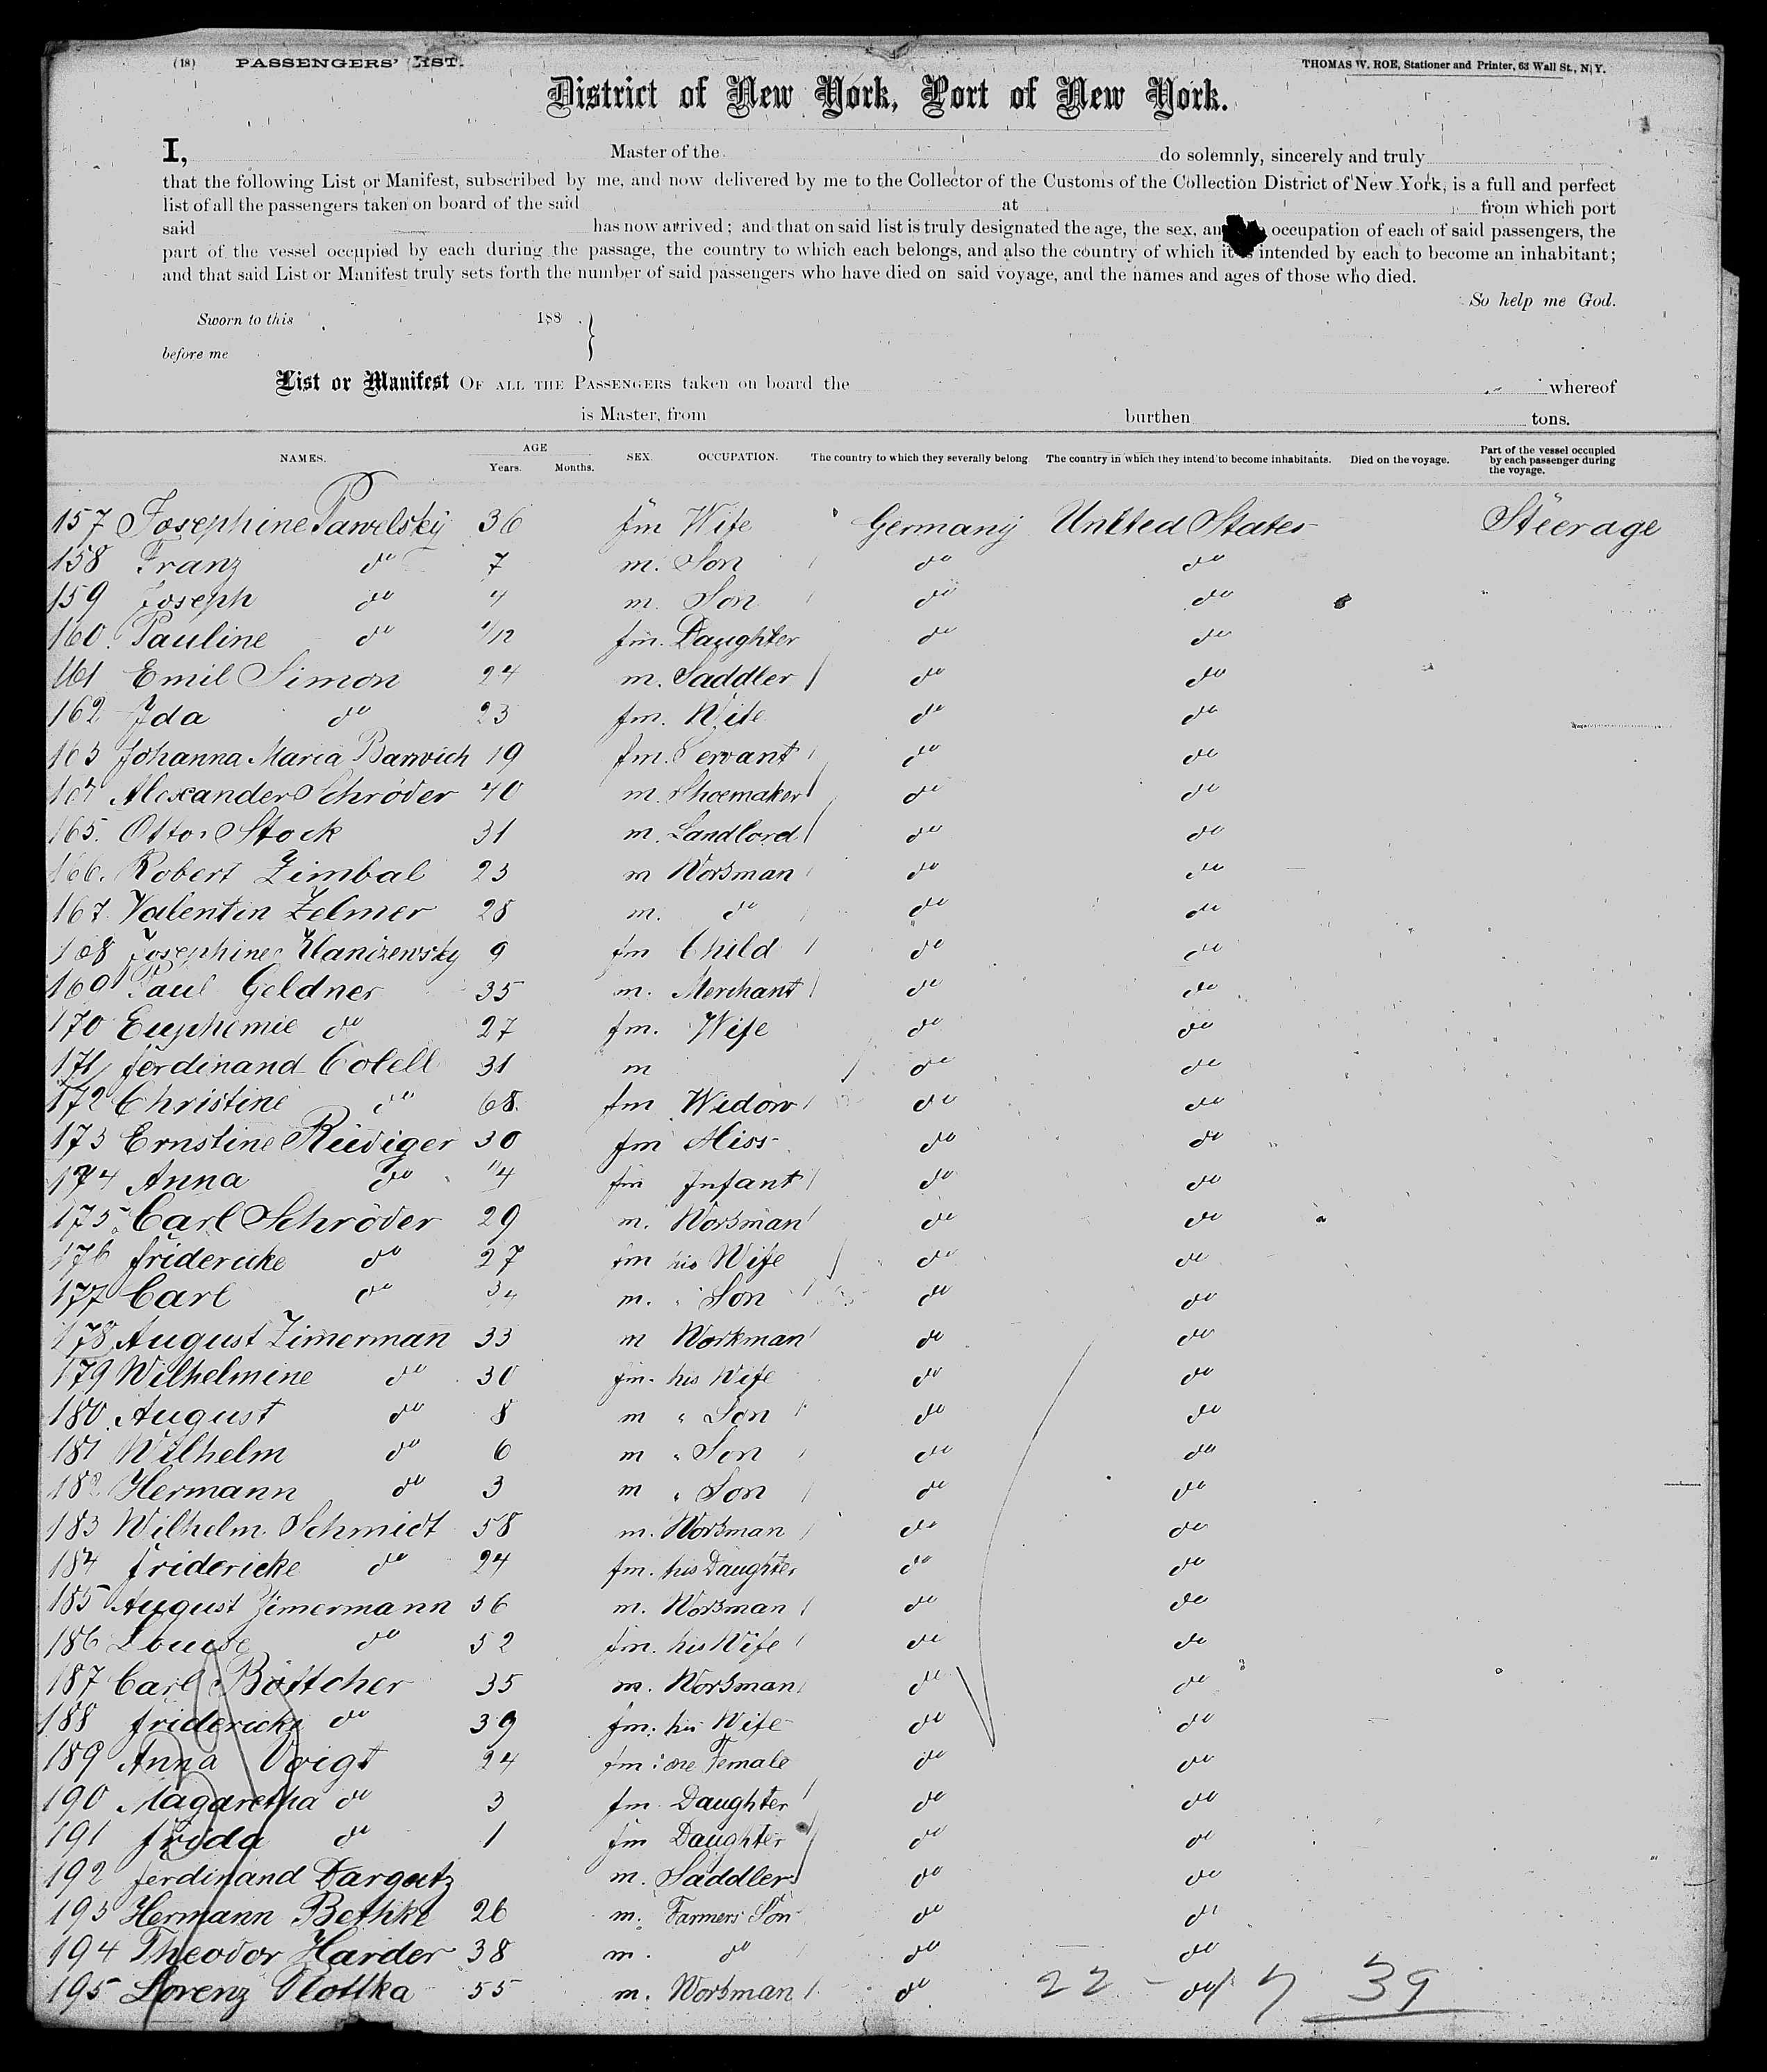 (18) PASSENGERS' LIST.
THOMAS W. ROE, Stationer and Printer, 63 Wall St., N.Y.
District of New York, Port of New York.
I, Master of the do solemnly, sincerely and truly
that the following List or Manifest, subscribed by me, and now delivered by me to the Collector of the Customs of the Collection District of New York, is a full and perfect
list of all the passengers taken on board of the said at from which port
said has now arrived; and that on said list is truly designated the age, the sex, an occupation of each of said passengers, the
part of the vessel occupied by each during the passage, the country to which each belongs, and also the country of which it is intended by each to become an inhabitant;
and that said List or Manifest truly sets forth the number of said passengers who have died on said voyage, and the names and ages of those who died.
So help me God.
Sworn to this 188
before me
List or Manifest OF ALL THE PASSENGERS taken on board the whereof
is Master, from burthen tons.
NAMES. AGE Years. Months. SEX. OCCUPATION. The country to which they severally belong The country in which they intend to become inhabitants. Died on the voyage. Part of the vessel occupied by each passenger during the voyage.
157 Josephine Pawelsky 36 fm Wife Germany United States Steerage
158 Franz do 7 m. Son do do
159 Joseph do 4 m. Son do do
160. Pauline do /12 fm. Daughter do do
161 Emil Simon 24 m. Saddler do do
162 Ida do 23 fm. Wife do do
163 Johanna Maria Barwich 19 fm. Servant do do
164 Alexander Schröder 40 m. Shoemaker do do
165. Otto Stock 31 m. Landlord do do
166. Robert Zimbal 23 m Worsman do do
167. Valentin Zelmer 28 m. do do do
168 Josephine 9 fm Child do do
169 Paul Geldner 35 m. Merchant do do
170 Euphemie do 27 fm. Wife do do
171 Ferdinand Colell 31 m do do
172 Christine do 68. fm Widow do do
173 Ernstine Rüdiger 30 fm Miss do do
174 Anna do 1/4 fm Infant do do
175. Carl Schröder 29 m. Worsman do do
176 Fridericke do 27 fm his Wife do do
177 Carl do 3/4 m. " Son do do
178 August Zimerman 33 m Workman do do
179 Wilhelmine do 30 fm. his Wife do do
180. August do 8 m " Son do do
181 Wilhelm do 6 m " Son do do
182 Hermann do 3 m " Son do do
183 Wilhelm Schmidt 58 m. Worsman do do
184 Fridericke do 24 fm. his Daughter do do
185 August Zimermann 56 m. Worsman do do
186 Louise do 52 fm. his Wife do do
187 Carl Böttcher 35 m. Worsman do do
188 Fridericke do 39 fm. his Wife do do
189 Anna Voigt 24 fm. one Female do do
190 Magaretha do 3 fm Daughter do do
191 Frida do 1 fm Daughter do do
192 Ferdinand Dargatz m. Saddler do do
193 Hermann Bethke 26 m. Farmers Son do do
194 Theodor Harder 38 m. do do do
195 Lorenz Plottka 55 m. Worsman do do
22 - 39